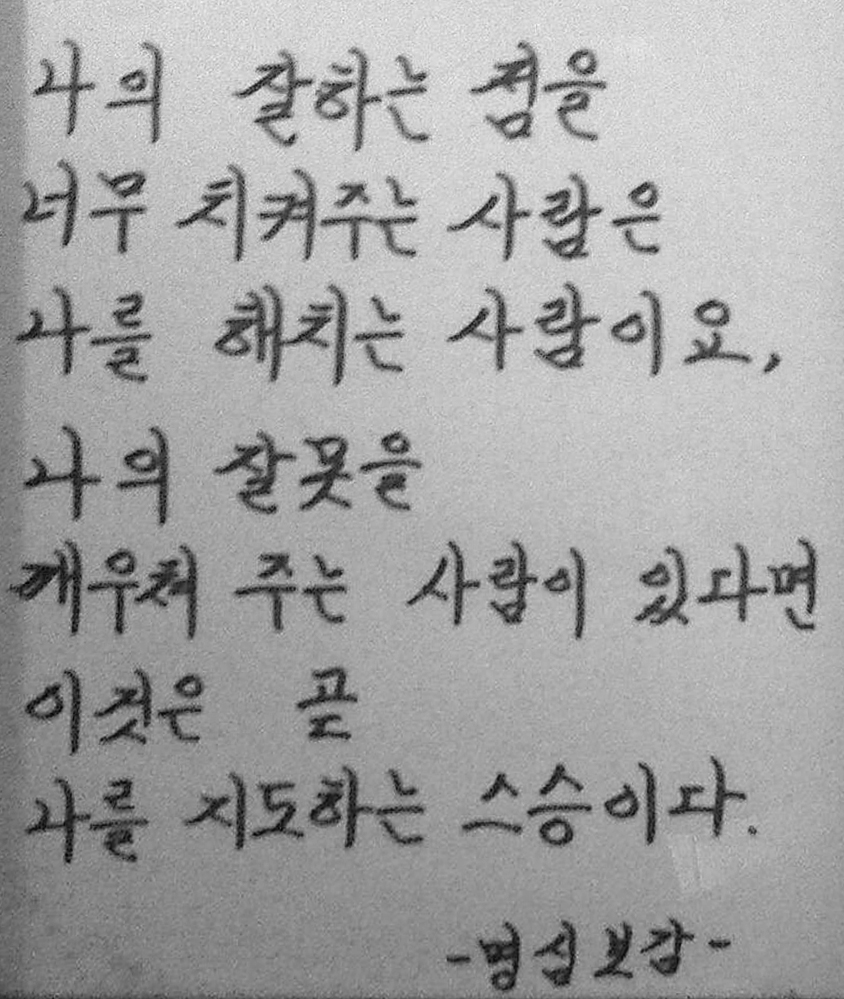 나의 잘하는 점을
너무 치켜주는 사람은
나를 해치는 사람이요,
나의 잘못을
깨우쳐 주는 사람이 있다면
이것은 곧
나를 지도하는 스승이다.
-명심보감-